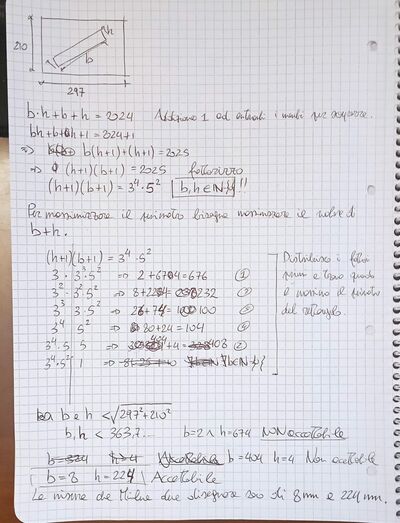 210
h
b
297
b·h+b+h = 2024 Addiziono 1 ad entrambi i membri per scomporre.
bh+b+h+1 = 2024+1
=> b(h+1)+(h+1) = 2025
=> (h+1)(b+1) = 2025 fattorizzo
(h+1)(b+1) = 3⁴·5² b,h∈N !!
Per massimizzare il perimetro bisogna massimizzare il valore di
b+h.
(h+1)(b+1) = 3⁴·5²
3 · 3³·5² => 2+674=676 ①
3² · 3²·5² => 8+224=232 ③
3³ 3·5² => 26+74=100
3⁴ 5² => 80+24=104
3⁴·5 5 => 404+4=408 ②
3⁴·5² 1
Distribuisco i fattori
primi e trovo quando
è massimo il perimetro
del rettangolo.
b e h < √297²+210²
b,h < 363,7... b=2 ∧ h=674 NON accettabile
b=404 h=4 Non accettabile
b=8 h=224 Accettabile
Le misure che Milue due disegnare sono di 8 mm e 224 mm.